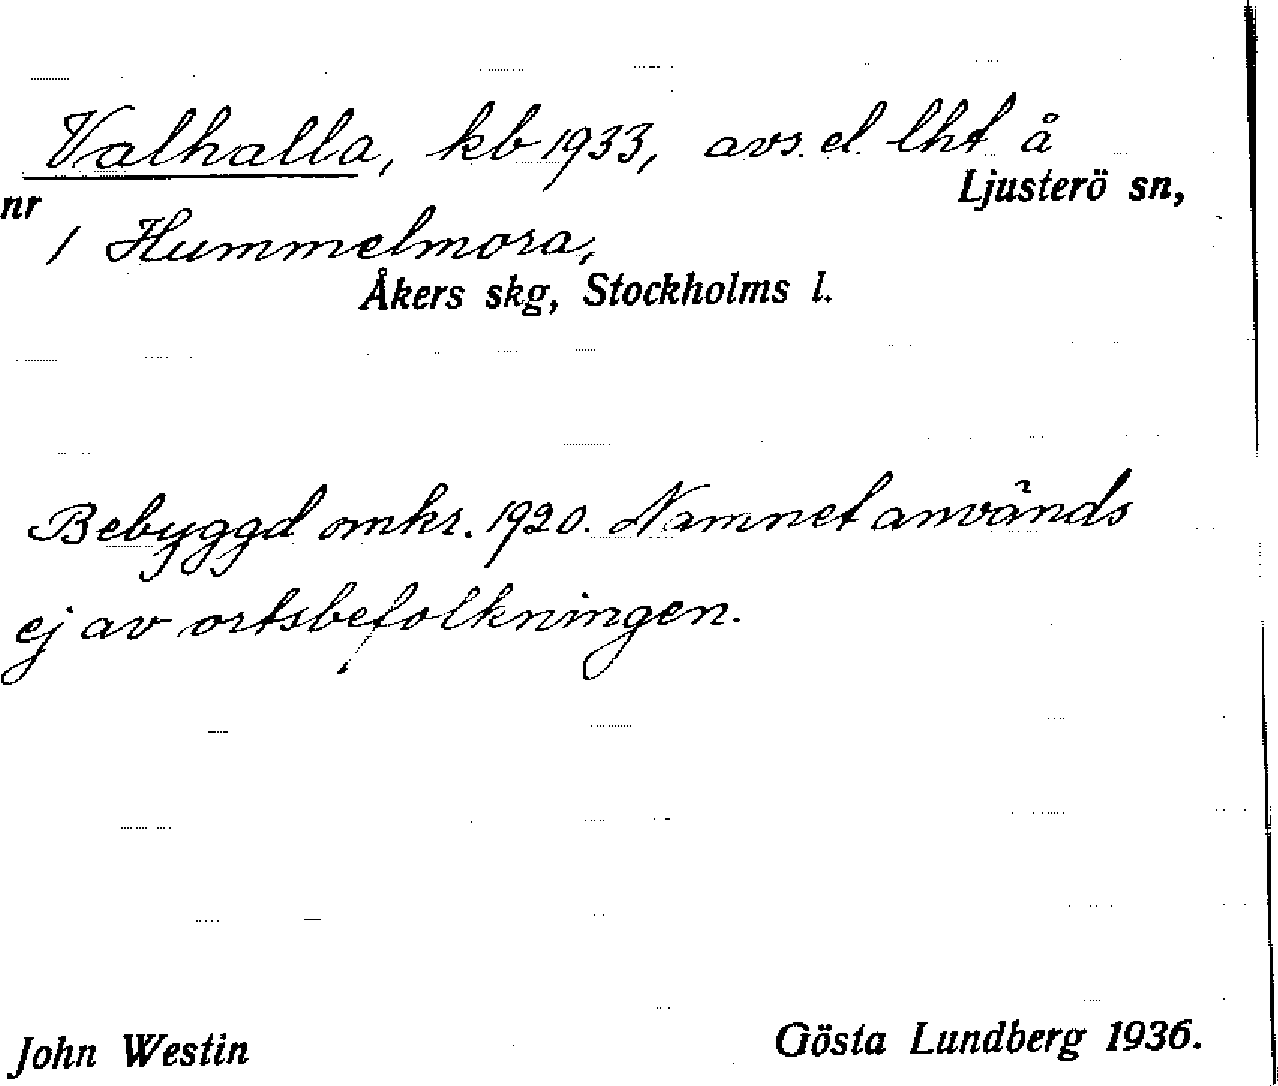 Valhalla, kb 1933, avs. el. lht å
Ljusterö sn,
nr
1 Hummelmora,
Åkers skg, Stockholms l.
Bebyggd omkr. 1920. Namnet används
ej av ortsbefolkningen.
John Westin
Gösta Lundberg 1936.